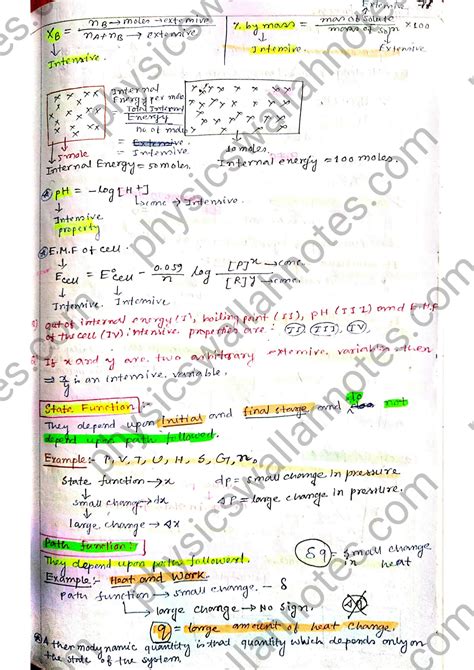 Extensive
X_B = n_B → moles → extensive / n_A + n_B → extensive
Intensive.
% by mass = mass of solute / mass of sol^n × 100
Intensive Extensive
Internal
Energy per mole
Total Internal
Energy
no. of mole
= Extensive
= Intensive.
5 mole
10 moles.
Internal Energy = 50 moles. Internal energy = 100 moles.
pH = - log [H+]
→ conc → Intensive.
Intensive
property
E.M.F of cell.
E cell = E° cell - 0.059/n log [P]^x → conc. / [R]^y → conc.
Intensive. Intensive
out of internal energy (I), boiling point (II), pH (III) and E.M.F
of the cell (IV) intensive properties are : (II) (III), IV,
If x and y are two arbitrary extensive variables then
⇒ x/y is an intensive variable.
State Function :-
They depend upon initial and final stage and do not
depend upon path followed.
Example:- P, V, T, U, H, S, G, n.
State function → x dp = small change in pressure
small change → dx ΔP = large change in pressure.
large change → Δx
Path function:
They depend upon path followed.
δq = small change in heat
Example:- Heat and Work.
Path function → small change - δ
large change → No sign.
q = large amount of heat change.
A thermodynamic quantity is that quantity which depends only on
the state of the system
physicswallahnotes.com